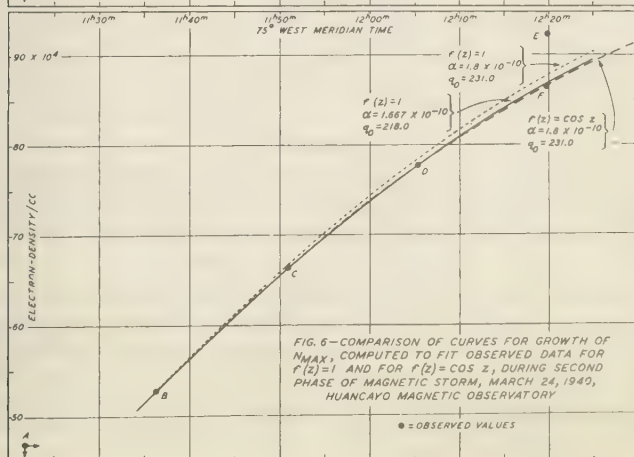 11ʰ30ᵐ 11ʰ40ᵐ 11ʰ50ᵐ 12ʰ00ᵐ 12ʰ10ᵐ 12ʰ20ᵐ
75° WEST MERIDIAN TIME
E
90 × 10⁴
f(z)=1
α=1.8 × 10⁻¹⁰
q₀=231.0
f(z)=1
α=1.667 × 10⁻¹⁰
q₀=218.0
F
f(z)=COS z
α=1.8 × 10⁻¹⁰
q₀=231.0
80
D
70
C
ELECTRON-DENSITY/CC
60
FIG. 6—COMPARISON OF CURVES FOR GROWTH OF
N_MAX, COMPUTED TO FIT OBSERVED DATA FOR
f(z)=1 AND FOR f(z)=COS z, DURING SECOND
PHASE OF MAGNETIC STORM, MARCH 24, 1940,
HUANCAYO MAGNETIC OBSERVATORY
B
50
● = OBSERVED VALUES
A